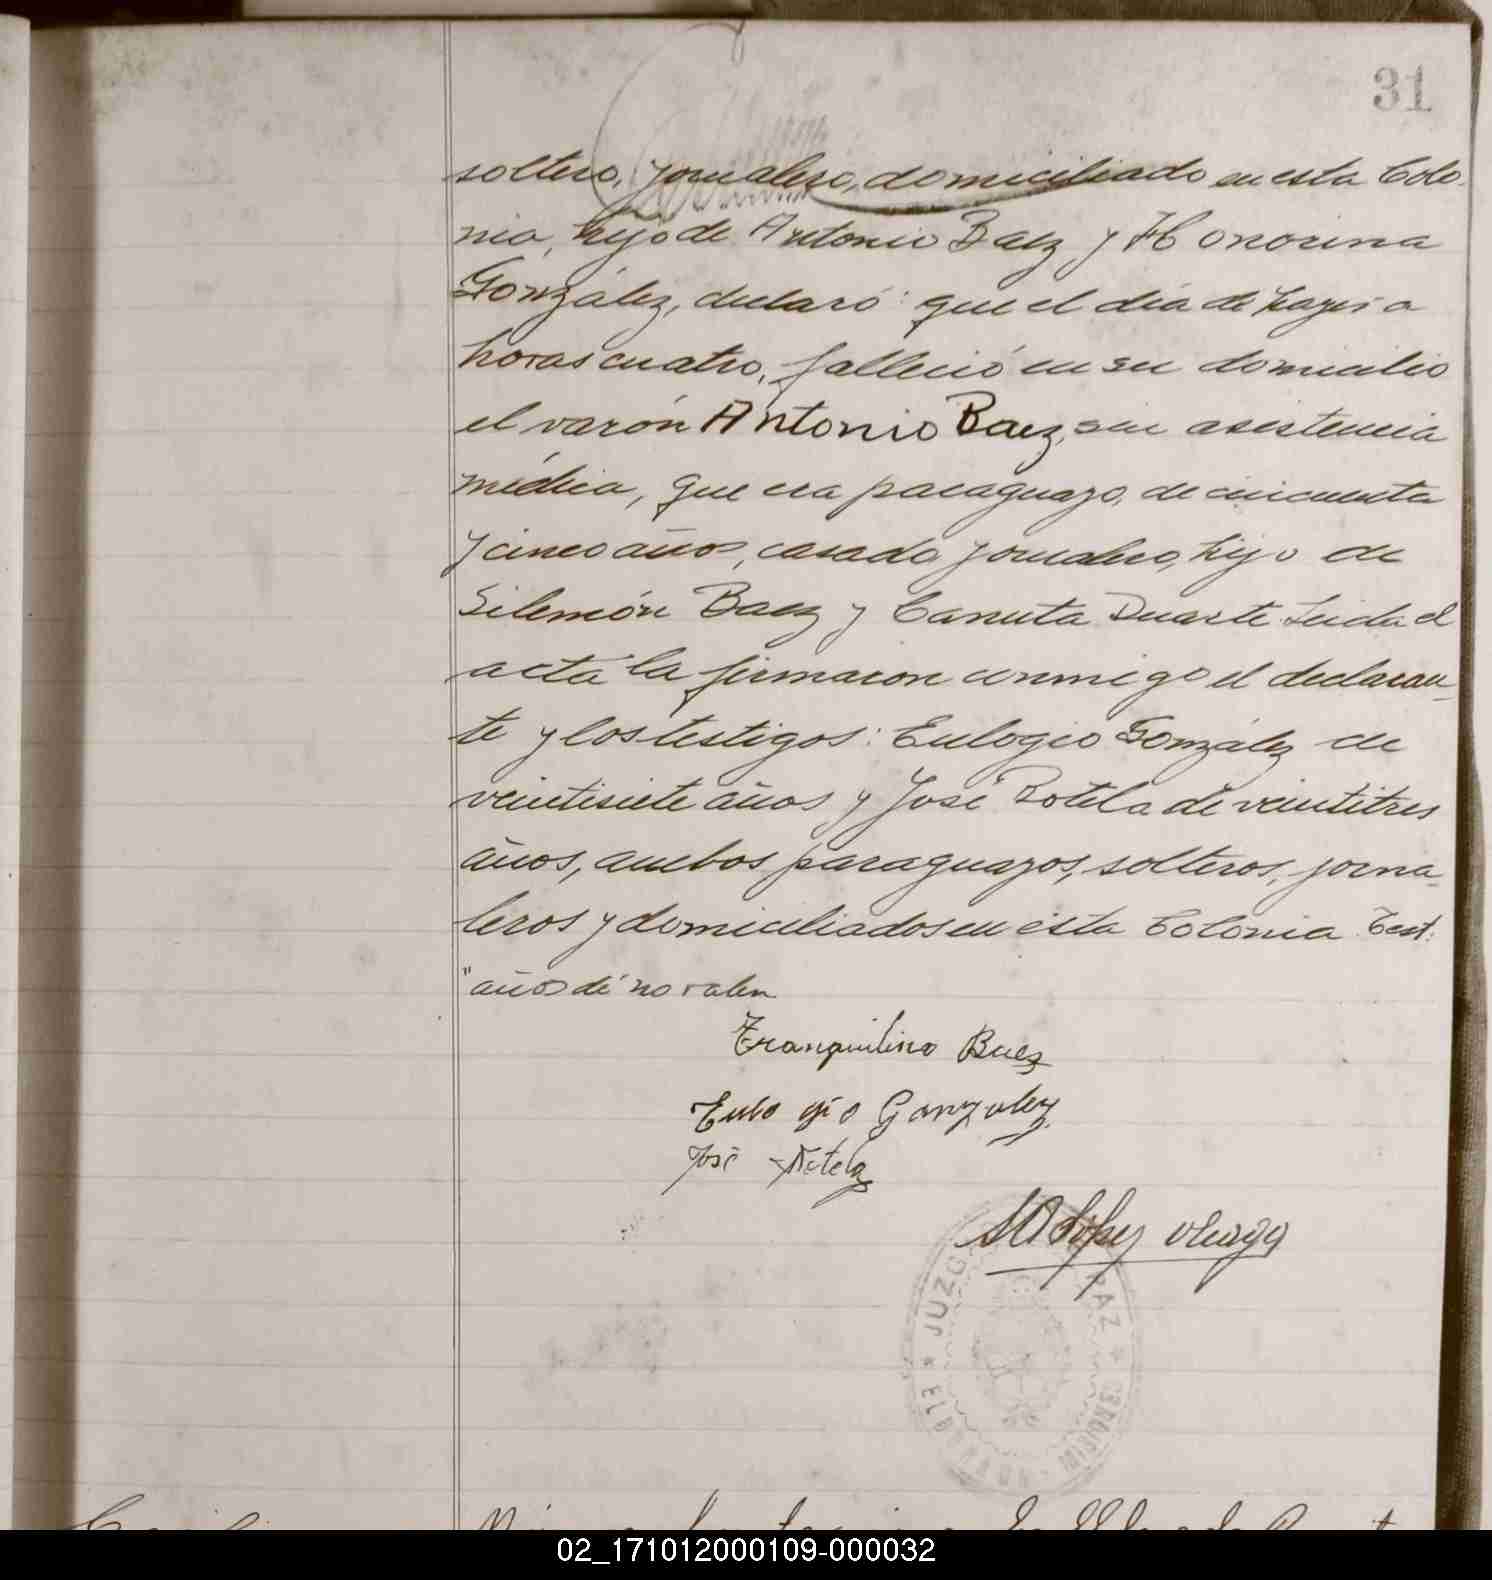 31
soltero, jornalero, domiciliado en esta Colo-
nia, hijo de Antonio Baez y Honorina
González, declaró: que el día de hayer a
horas cuatro, falleció en su domicilio
el varón Antonio Baez, sin asistencia
médica, que era paraguayo, de cincuenta
y cinco años, casado, jornalero, hijo de
Silemón Baez y Canuta Duarte. Leida el
acta la firmaron conmigo el declaran-
te y los testigos: Eulogio González de
veintisiete años y José Rotela de veintitres
años, ambos paraguayos, solteros, jorna-
leros y domiciliados en esta Colonia. Test:
"años de" no valen
Tranquilino Baez
Eulo gio Gonzalez
José Rotela
JUZG PAZ
02_171012000109-000032